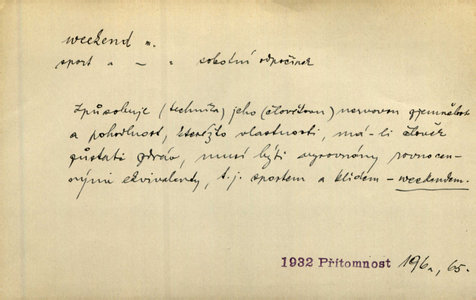 weekend m.
sport a – „ sobotní odpočinek
Způsobuje (technika) jeho (člověkovu) nervovou zjemnělost
a pohodlnost, kteréžto vlastnosti, má-li člověk
zůstati zdráv, musí býti vyrovnány rovnocen-
nými ekvivalenty, t.j. sportem a klidem – weekendem.
1932 Přítomnost 196a, 65.